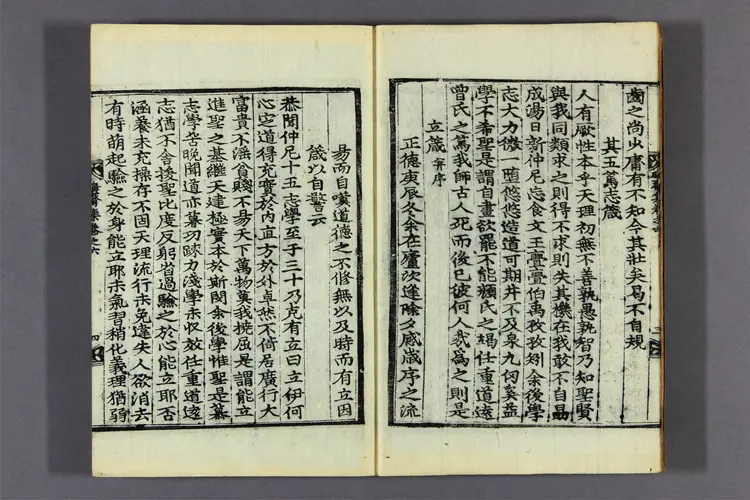 齒之尚少庸有不知今其壯矣曷不自規
其五篤志箴
人有厥性本乎天理初無不善孰愚孰智乃知聖賢
與我同類求之則得不求則失其機在我敢不自勗
成湯日新仲尼忘食文王亹亹伯禹孜孜矧余後學
志大力微一墮悠悠造道可期井不及泉九仞奚益
學不希聖是謂自畫欲罷不能顏氏之竭任重道遠
曾氏之篤我師古人死而後已彼何人哉爲之則是
立箴 幷序
正德庚辰冬余在廬次逢除夕感歲序之流
易而自嘆道德之不修無以及時而有立因
箴以自警云
恭聞仲尼十五志學至于三十乃克有立曰立伊何
心定道得充實於內直方於外卓然不倚居廣行大
富貴不淫貧賤不易天下萬物莫我撓屈是謂能立
進聖之基繼天建極實本於斯閔余後學惟聖是慕
志學苦晚聞道亦暮功疎力淺學未收效任重道遠
志猶不舍後聖比度反躬省過驗之於心能立耶否
涵養未充操存不固天理流行未免違失人欲消去
有時萌起驗之於身能立耶未氣習稍化義理猶弱
四